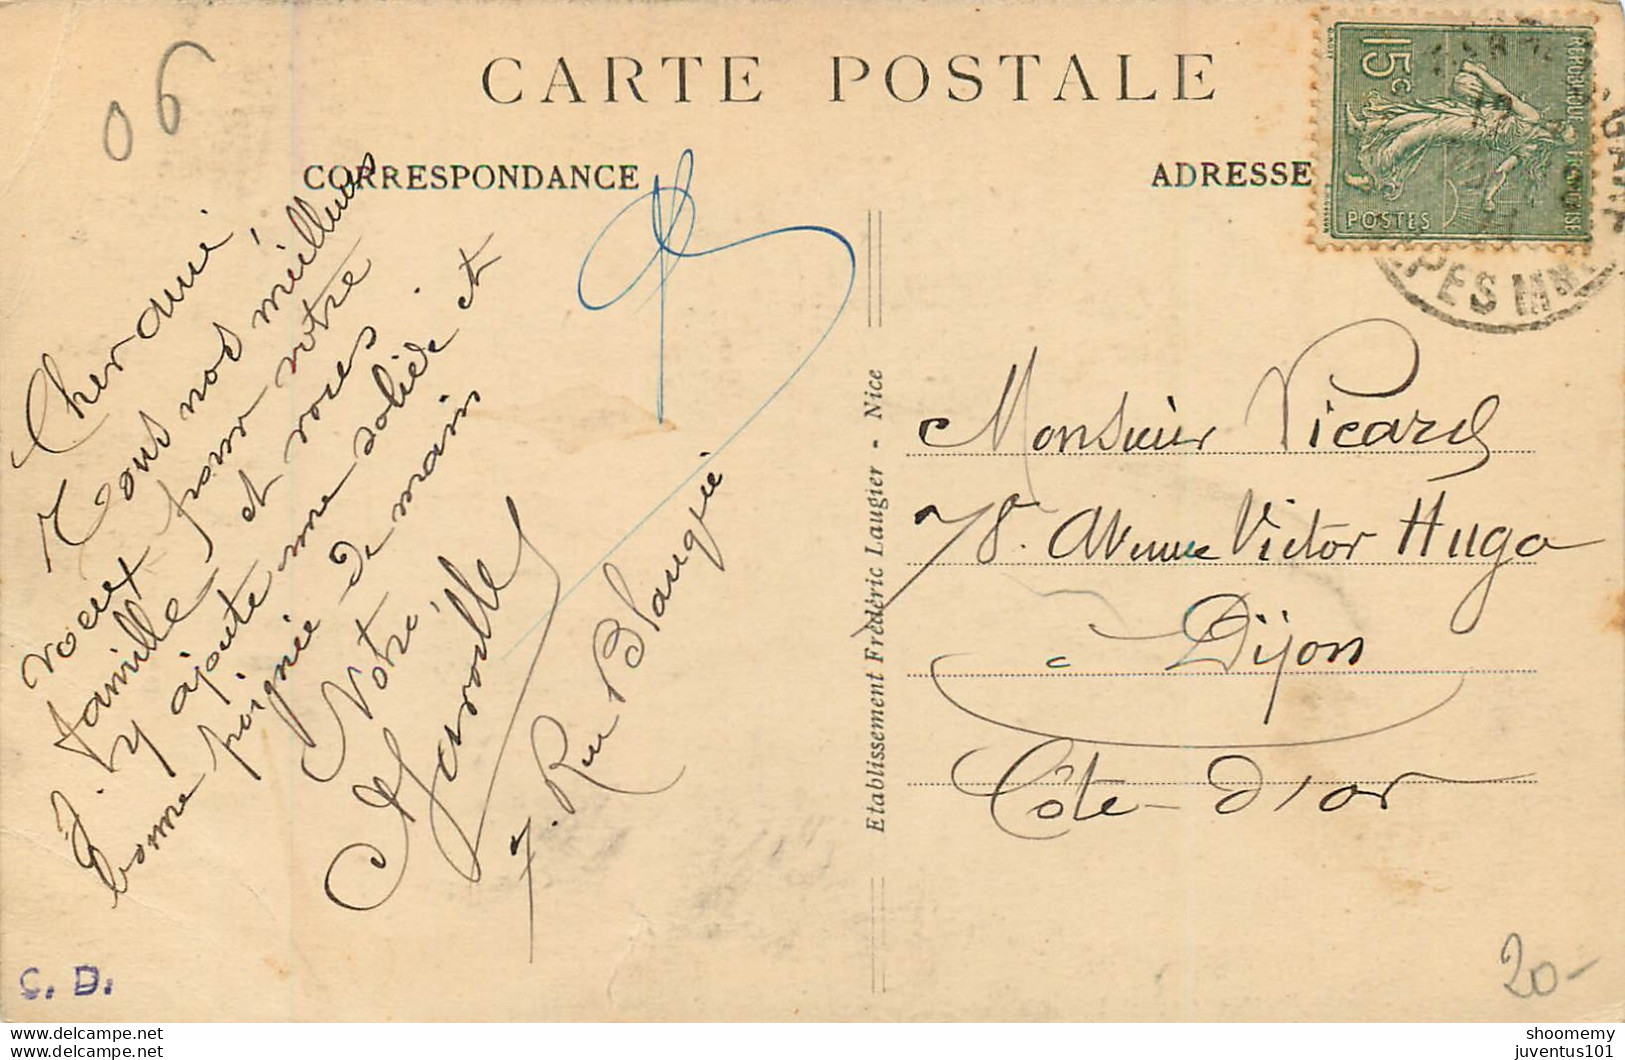 CARTE POSTALE
CORRESPONDANCE
ADRESSE
06
Cher ami,
Tous nos meilleurs
voeux pour votre
famille et vous
J'y ajoute une solide et
bonne poignée de main
Votre
7. Rue Blanqui
Etablissement Frédéric Laugier - Nice
Monsieur Picard
78. Avenue Victor Hugo
Dijon
Côte-d'or
15c
REPUBLIQUE FRANCAISE
POSTES
GARE
ALPES MMES
C. D.
20-
delcampe.net
shoomemy
juventus101